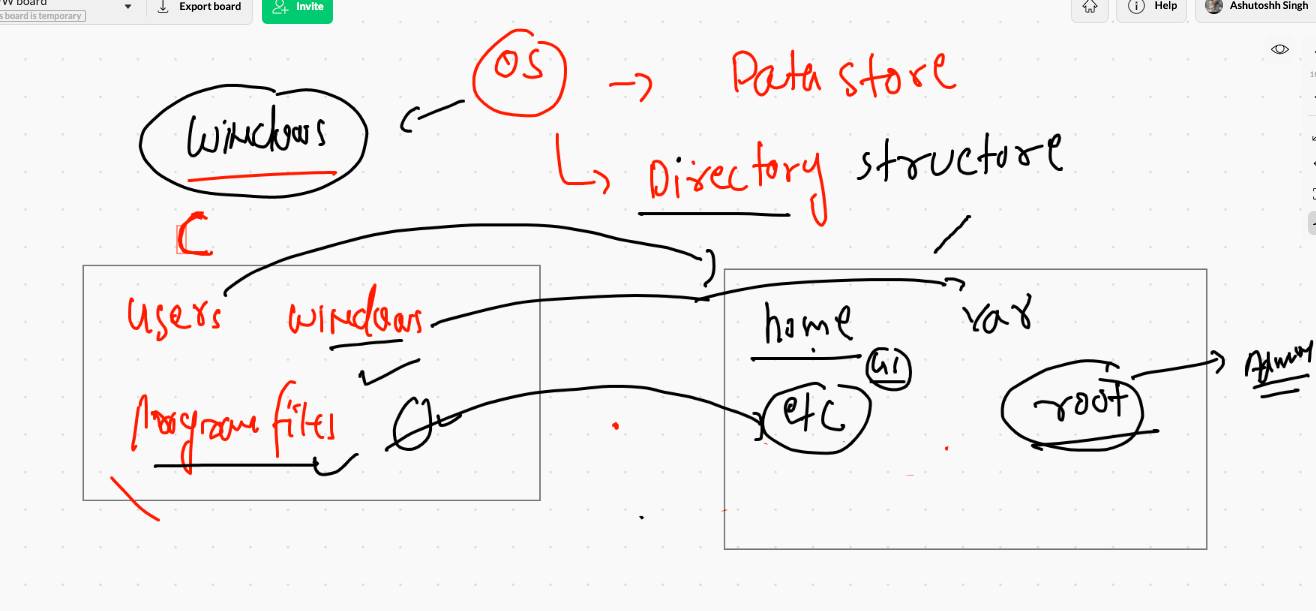 W board
s board is temporary
Export board
Invite
Help
Ashutoshh Singh
OS → Data store
Windows
Directory structure
C
users windows
Program files
home var
etc
root